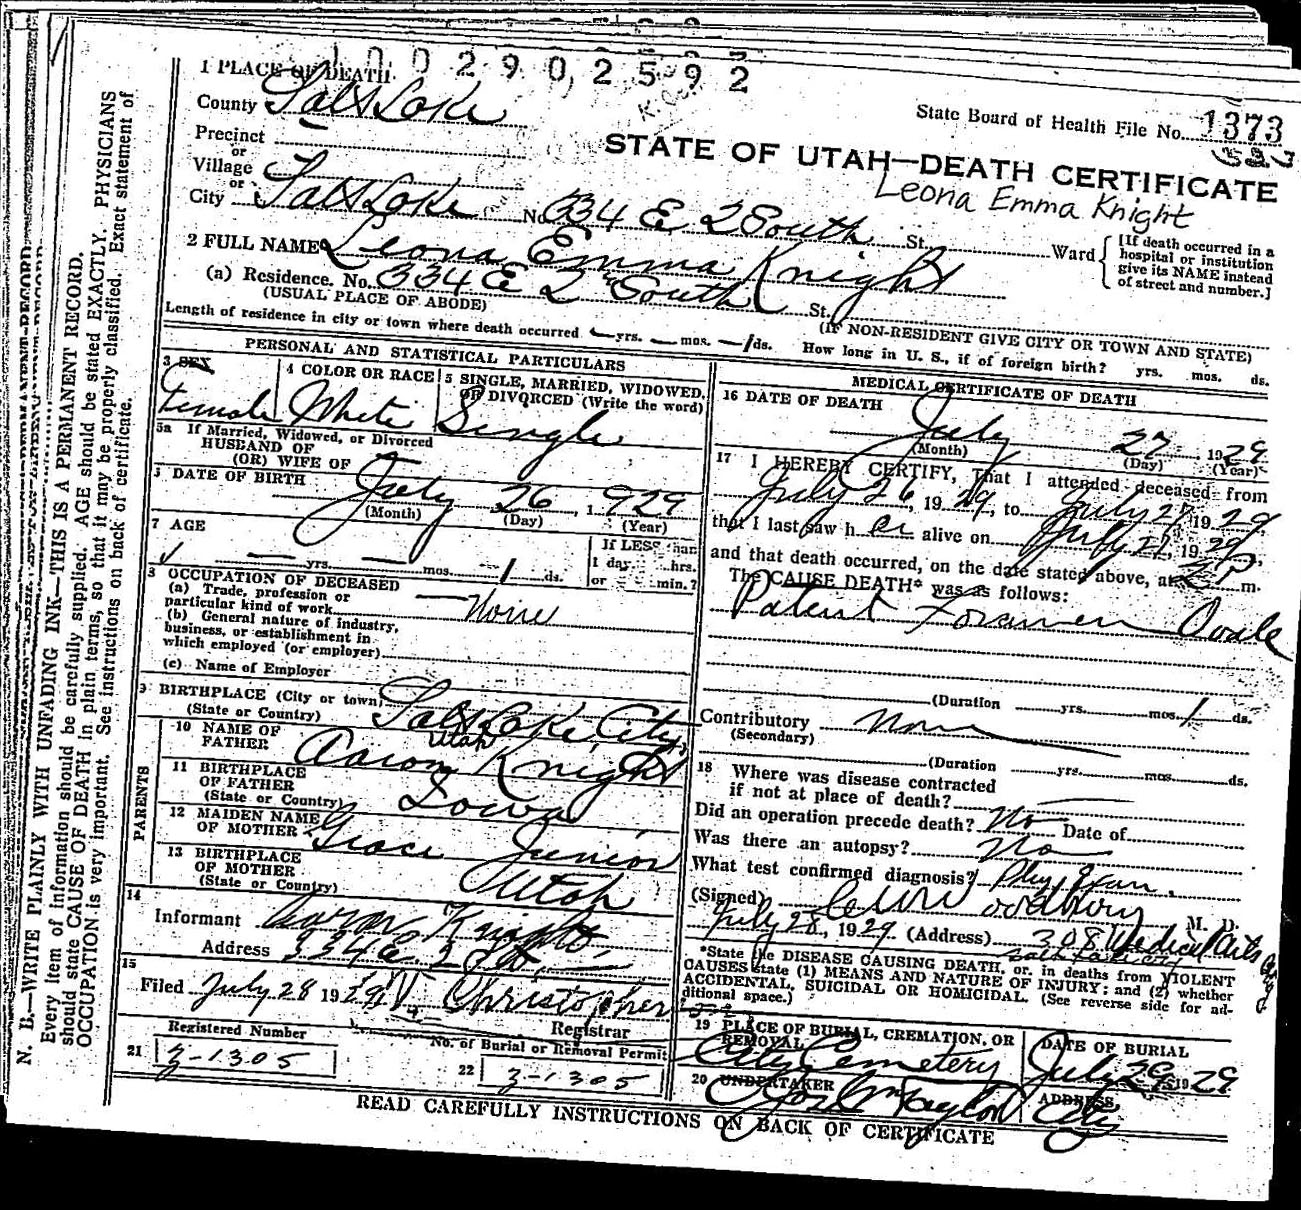 1002902592
1 PLACE OF DEATH
County Salt Lake
State Board of Health File No. 1373
Precinct
or
Village
or
City Salt Lake No. 334 E 2 South St. Ward
STATE OF UTAH—DEATH CERTIFICATE
Leona Emma Knight
[If death occurred in a
hospital or institution
give its NAME instead
of street and number.]
2 FULL NAME Leona Emma Knight
(a) Residence. No. 334 E 2 South St.
(USUAL PLACE OF ABODE)
(IF NON-RESIDENT GIVE CITY OR TOWN AND STATE)
Length of residence in city or town where death occurred — yrs. — mos. — 1 ds.
How long in U. S., if of foreign birth? yrs. mos. ds.
PERSONAL AND STATISTICAL PARTICULARS
3 SEX
Female
4 COLOR OR RACE
White
5 SINGLE, MARRIED, WIDOWED,
OR DIVORCED (Write the word)
Single
5a If Married, Widowed, or Divorced
HUSBAND OF
(OR) WIFE OF
DATE OF BIRTH July 26, 1929
(Month) (Day) (Year)
7 AGE
— yrs. — mos. 1 ds.
If LESS than
1 day hrs.
or min.?
8 OCCUPATION OF DECEASED
(a) Trade, profession or
particular kind of work None
(b) General nature of industry,
business, or establishment in
which employed (or employer)
(c) Name of Employer
9 BIRTHPLACE (City or town) Salt Lake City,
(State or Country) Utah
PARENTS
10 NAME OF
FATHER Aaron Knight
11 BIRTHPLACE
OF FATHER
(State or Country) Iowa
12 MAIDEN NAME
OF MOTHER Grace Junior
13 BIRTHPLACE
OF MOTHER
(State or Country) Utah
14
Informant Aaron Knight
Address 334 E. 2 So.
15
Filed July 28 1929 Christopher
Registrar
Registered Number
21 3-1305
No. of Burial or Removal Permit
22 3-1305
MEDICAL CERTIFICATE OF DEATH
16 DATE OF DEATH July 27, 1929
(Month) (Day) (Year)
17 I HEREBY CERTIFY, That I attended deceased from
July 26, 1929, to July 27, 1929
that I last saw her alive on July 27, 1929,
and that death occurred, on the date stated above, at 2 P. m.
The CAUSE DEATH* was as follows:
Patent Foramen Ovale
(Duration yrs. mos. 1 ds.
Contributory None
(Secondary)
(Duration yrs. mos. ds.
18 Where was disease contracted
if not at place of death?
Did an operation precede death? No Date of
Was there an autopsy? No
What test confirmed diagnosis? Phy. Exam.
(Signed) Woodbury M. D.
July 28, 1929 (Address) 308 Medical Arts
Salt Lake City
*State the DISEASE CAUSING DEATH, or, in deaths from VIOLENT
CAUSES state (1) MEANS AND NATURE OF INJURY; and (2) whether
ACCIDENTAL, SUICIDAL OR HOMICIDAL. (See reverse side for ad-
ditional space.)
19 PLACE OF BURIAL, CREMATION, OR
REMOVAL
City Cemetery
DATE OF BURIAL
July 29, 1929
20 UNDERTAKER
Jos. Wm. Taylor
ADDRESS
City
READ CAREFULLY INSTRUCTIONS ON BACK OF CERTIFICATE
N. B.—WRITE PLAINLY WITH UNFADING INK—THIS IS A PERMANENT RECORD.
Every item of information should be carefully supplied. AGE should be stated EXACTLY. PHYSICIANS
should state CAUSE OF DEATH in plain terms, so that it may be properly classified. Exact statement of
OCCUPATION is very important. See instructions on back of certificate.